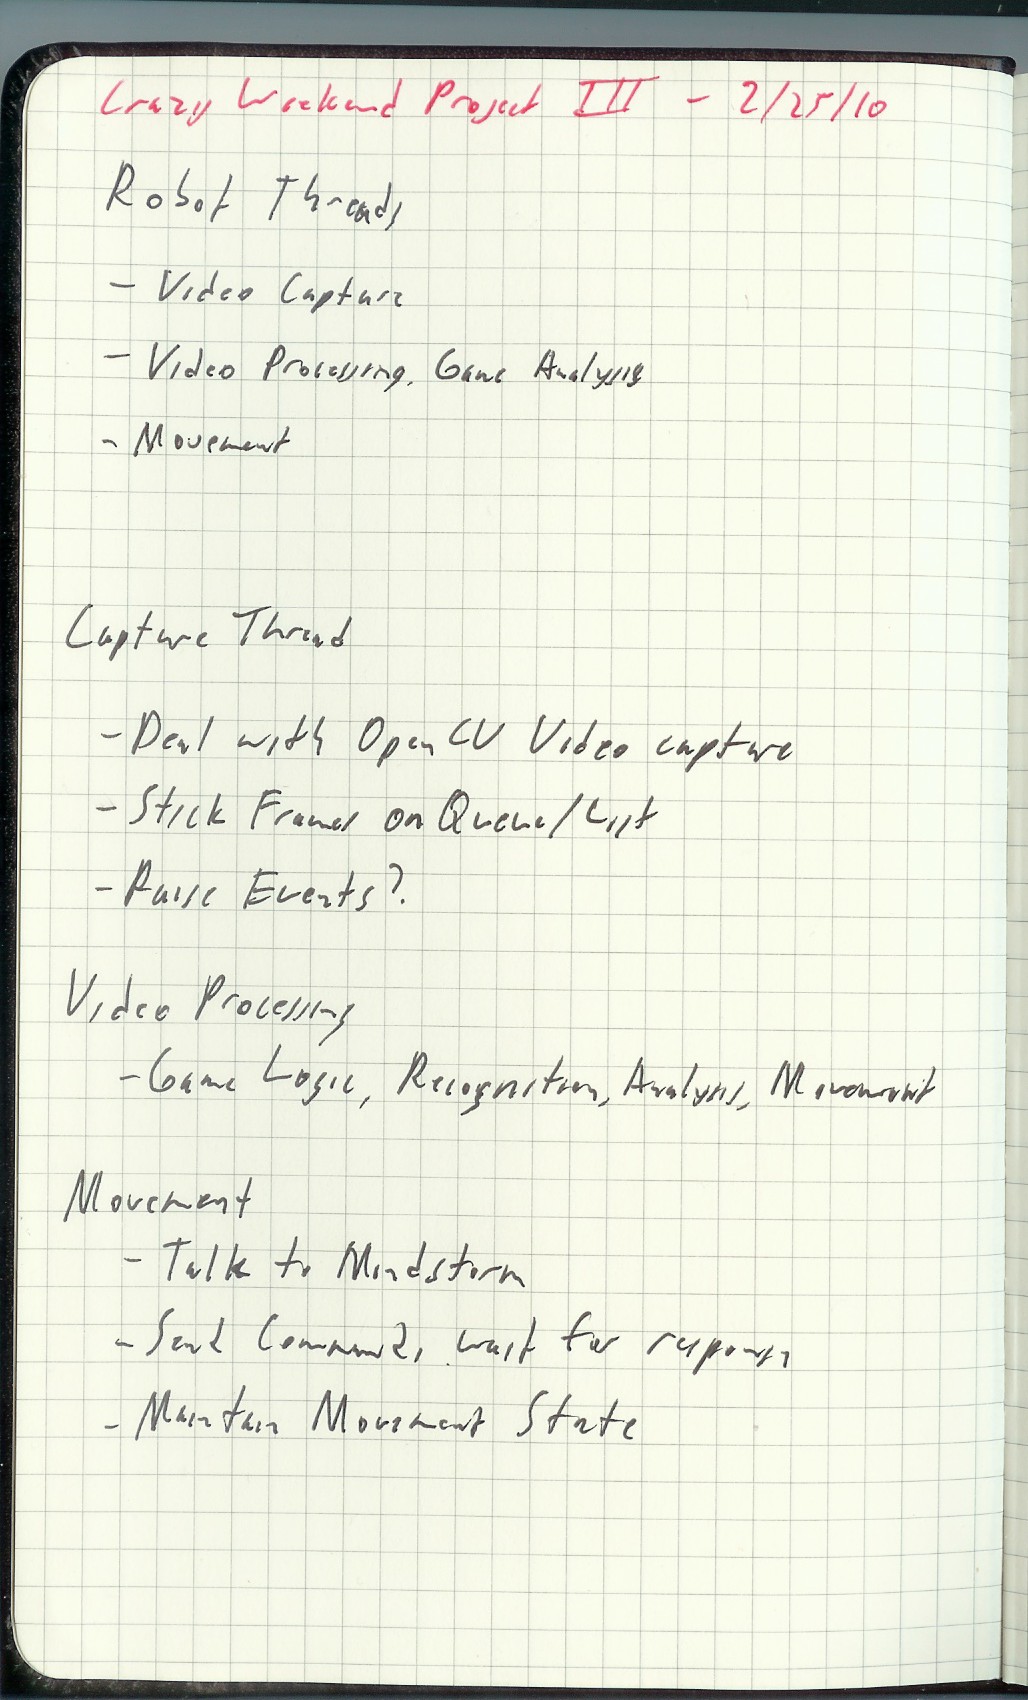 Crazy Weekend Project III - 2/25/10
Robot Threads
- Video Capture
- Video Processing, Game Analysis
- Movement
Capture Thread
- Deal with OpenCV Video capture
- Stick Frames on Queue/List
- Raise Events?
Video Processing
- Game Logic, Recognition, Analysis, Movement
Movement
- Talk to Mindstorm
- Send Command, wait for response
- Maintain Movement State